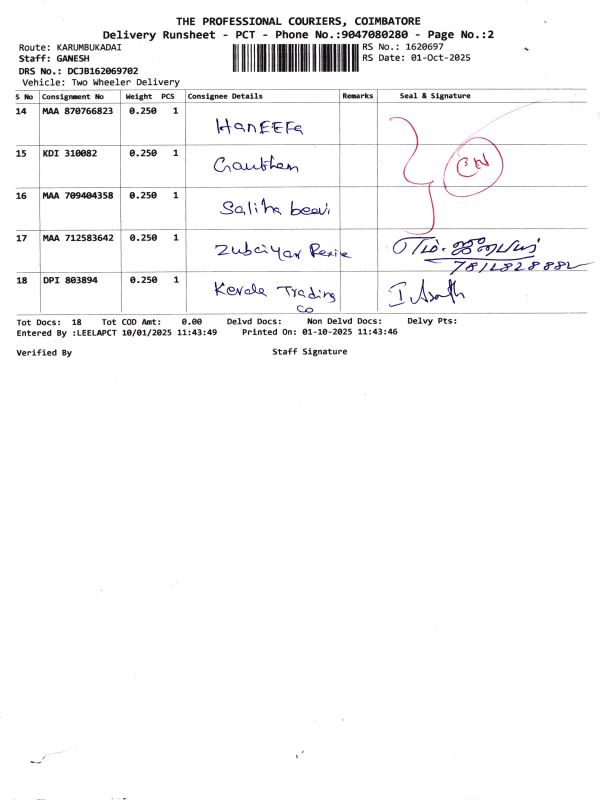 THE PROFESSIONAL COURIERS, COIMBATORE
Delivery Runsheet - PCT - Phone No.:9047080280 - Page No.:2
Route: KARUMBUKADAI RS No.: 1620697
Staff: GANESH RS Date: 01-Oct-2025
DRS No.: DCJB162069702
Vehicle: Two Wheeler Delivery
S No Consignment No Weight PCS Consignee Details Remarks Seal & Signature
14 MAA 870766823 0.250 1 HanEEFa
15 KDI 310082 0.250 1 Gautham
16 MAA 709404358 0.250 1 Saliha beevi
17 MAA 712583642 0.250 1 Zubaiyar
18 DPI 803894 0.250 1 Kerala Trading
Co
Tot Docs: 18 Tot COD Amt: 0.00 Delvd Docs: Non Delvd Docs: Delvy Pts:
Entered By :LEELAPCT 10/01/2025 11:43:49 Printed On: 01-10-2025 11:43:46
Verified By Staff Signature